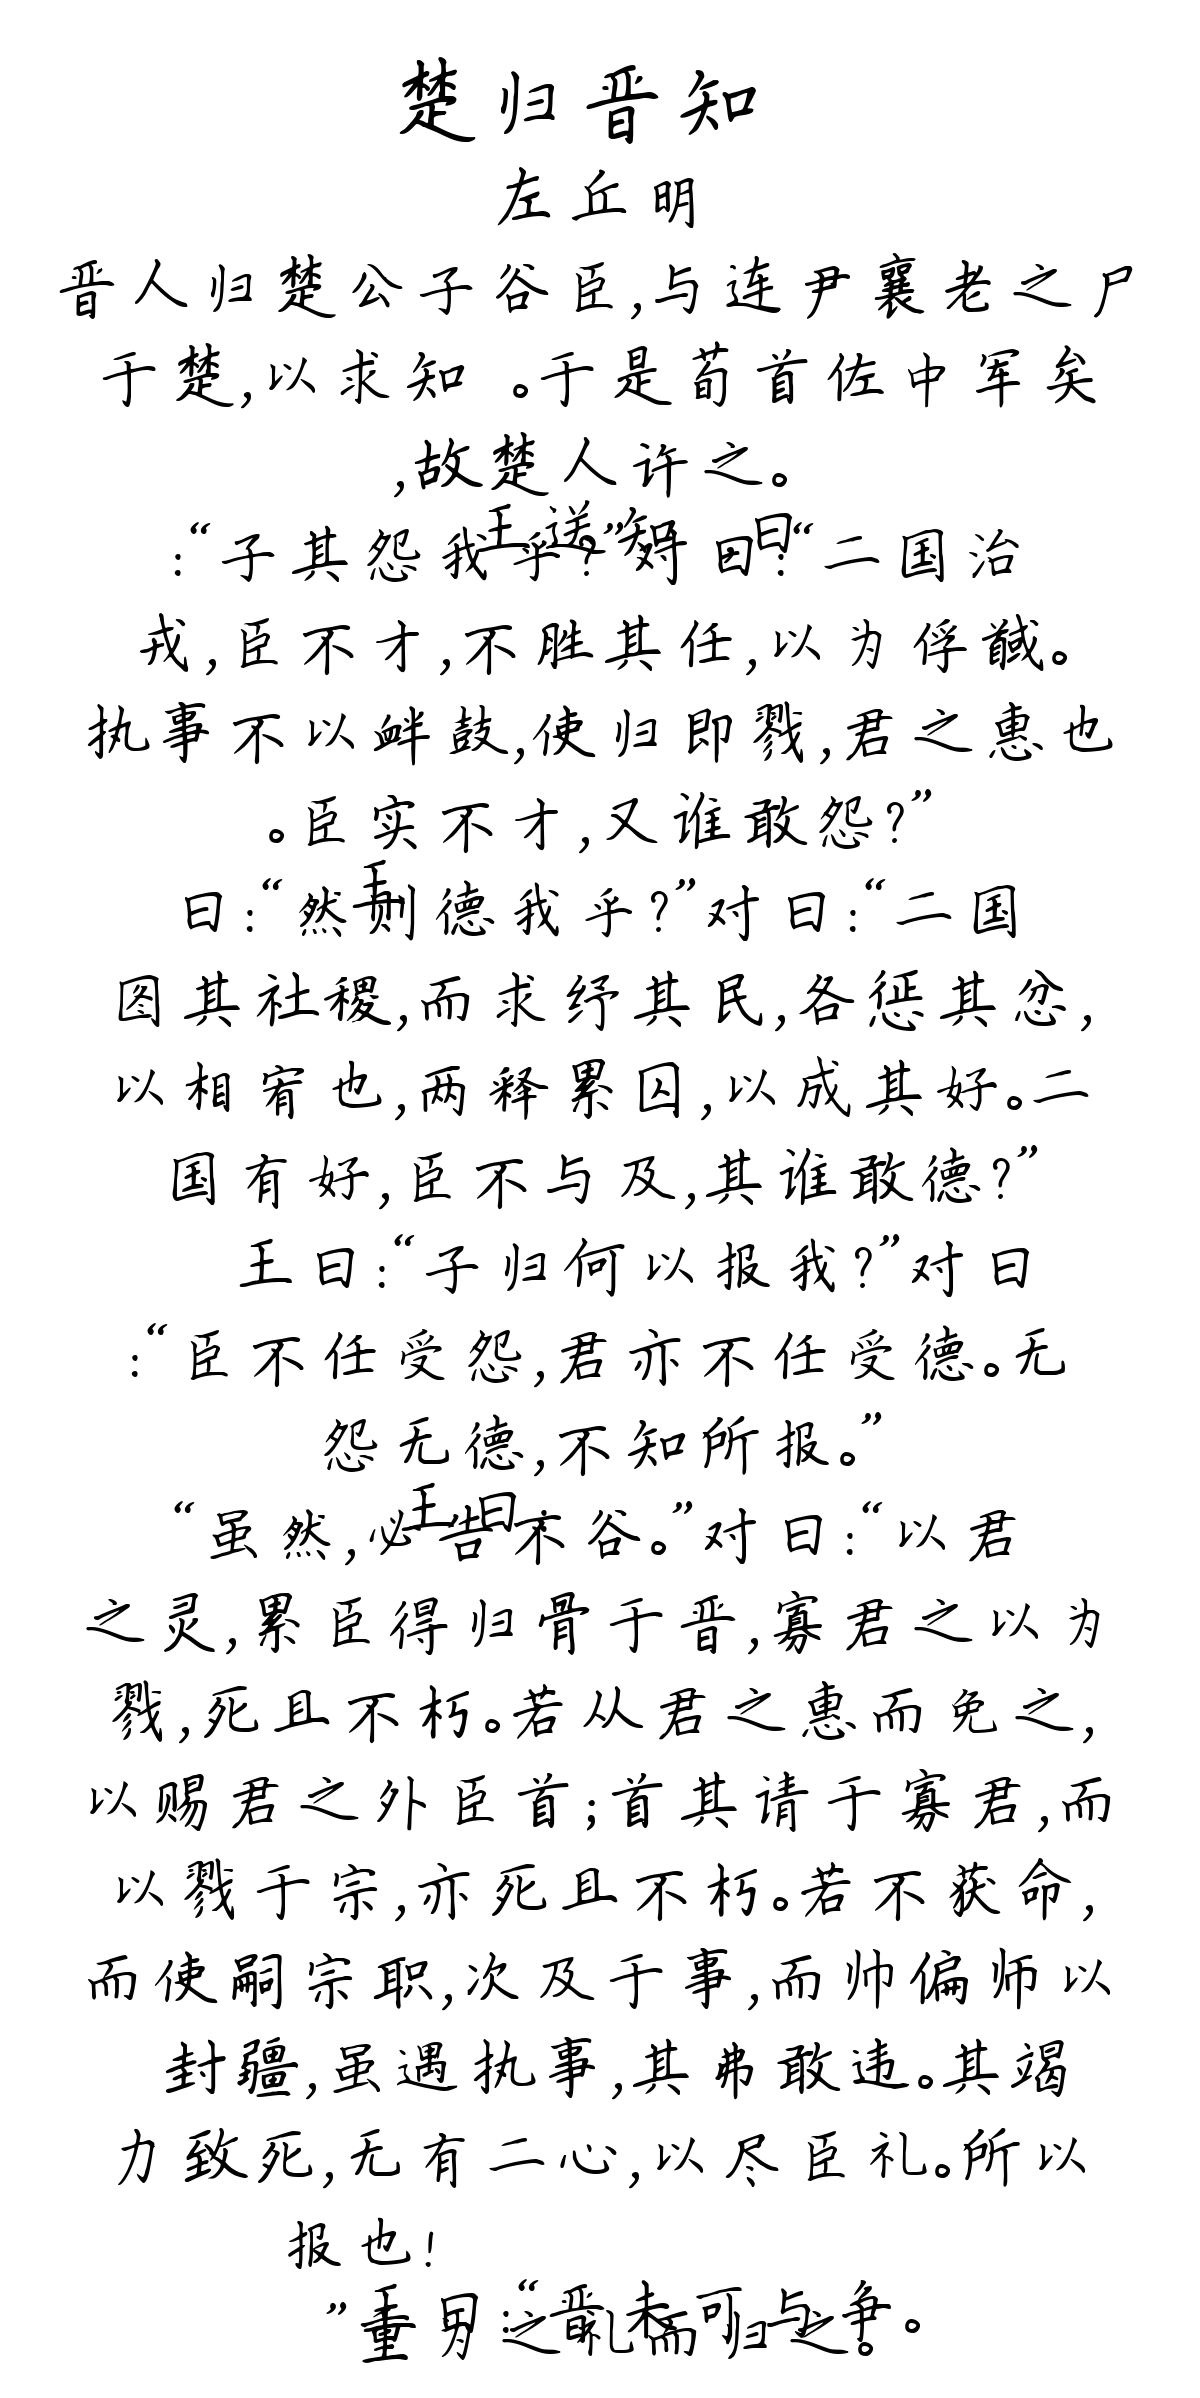 楚归晋知
左丘明
晋人归楚公子谷臣,与连尹襄老之尸
于楚,以求知 。于是荀首佐中军矣
,故楚人许之。
王送知 曰
:“子其怨我乎?”对曰:“二国治
戎,臣不才,不胜其任,以为俘馘。
执事不以衅鼓,使归即戮,君之惠也
。臣实不才,又谁敢怨?”
王
曰:“然则德我乎?”对曰:“二国
图其社稷,而求纾其民,各惩其忿,
以相宥也,两释累囚,以成其好。二
国有好,臣不与及,其谁敢德?”
王曰:“子归何以报我?”对曰
:“臣不任受怨,君亦不任受德。无
怨无德,不知所报。”
王曰:
“虽然,必告不谷。”对曰:“以君
之灵,累臣得归骨于晋,寡君之以为
戮,死且不朽。若从君之惠而免之,
以赐君之外臣首;首其请于寡君,而
以戮于宗,亦死且不朽。若不获命,
而使嗣宗职,次及于事,而帅偏师以
封疆,虽遇执事,其弗敢违。其竭
力致死,无有二心,以尽臣礼。所以
报也!
王曰:“晋未可与争。
”重为之礼而归之。